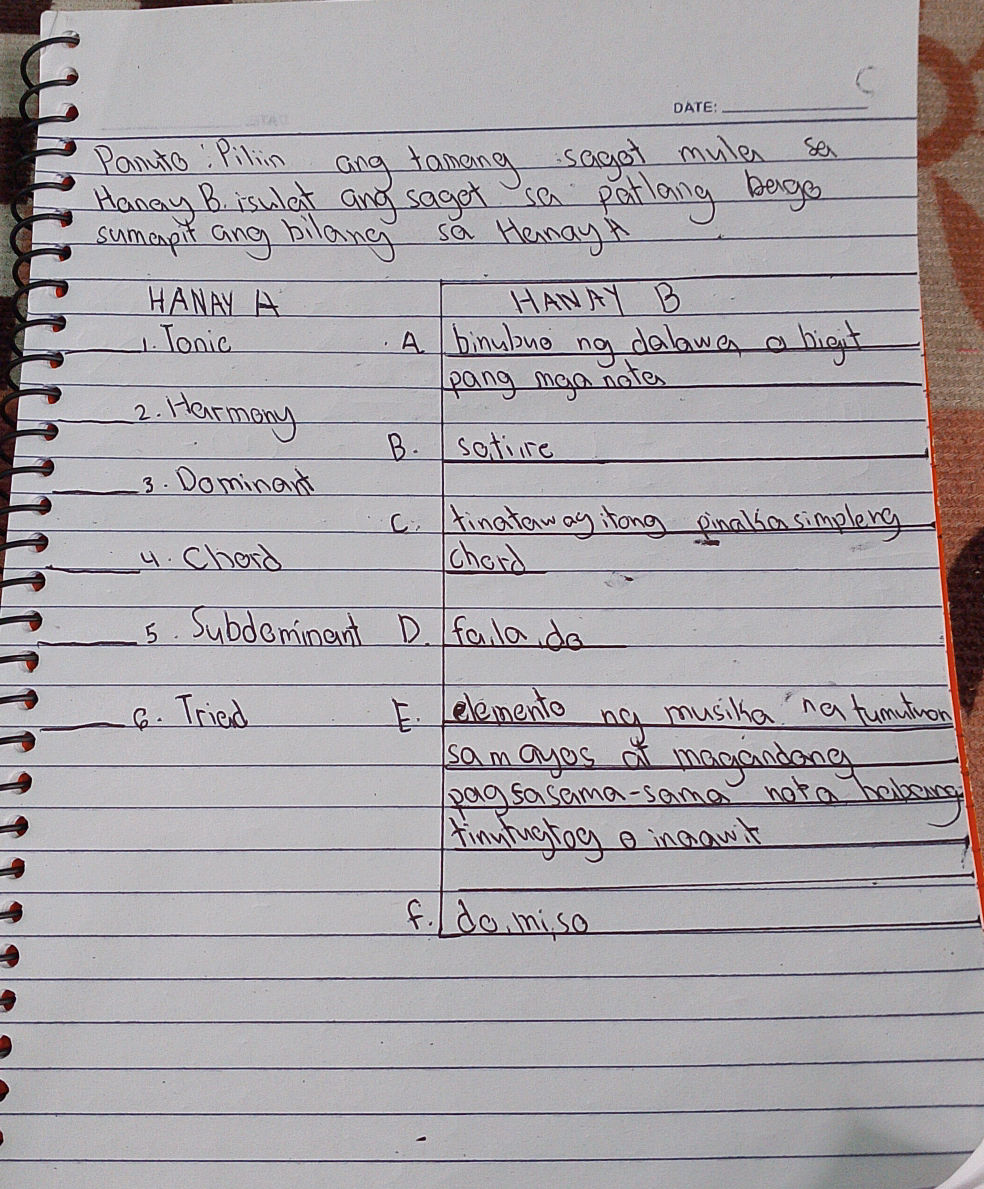 DATE:
Panuto: Piliin ang tamang sagot mula sa
Hanay B. isulat ang sagot sa patlang bago
sumapit ang bilang sa Hanay A
HANAY A
1. Tonic
2. Harmony
3. Dominant
4. Chord
5. Subdominant
6. Triad
HANAY B
A binubuo ng dalawa o higit
pang mga nota
B. so,ti,re
C. tinatawag itong pinaka simpleng
chord
D. fa,la,do
E. elemento ng musika na tumutuon
sa mayos at magandang
pagsasama-sama nota habang
tinutugtog o inaawit
F. do,mi,so